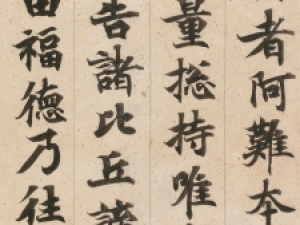 者阿難本
量捴持唯
告諸比丘諸
由福德乃往